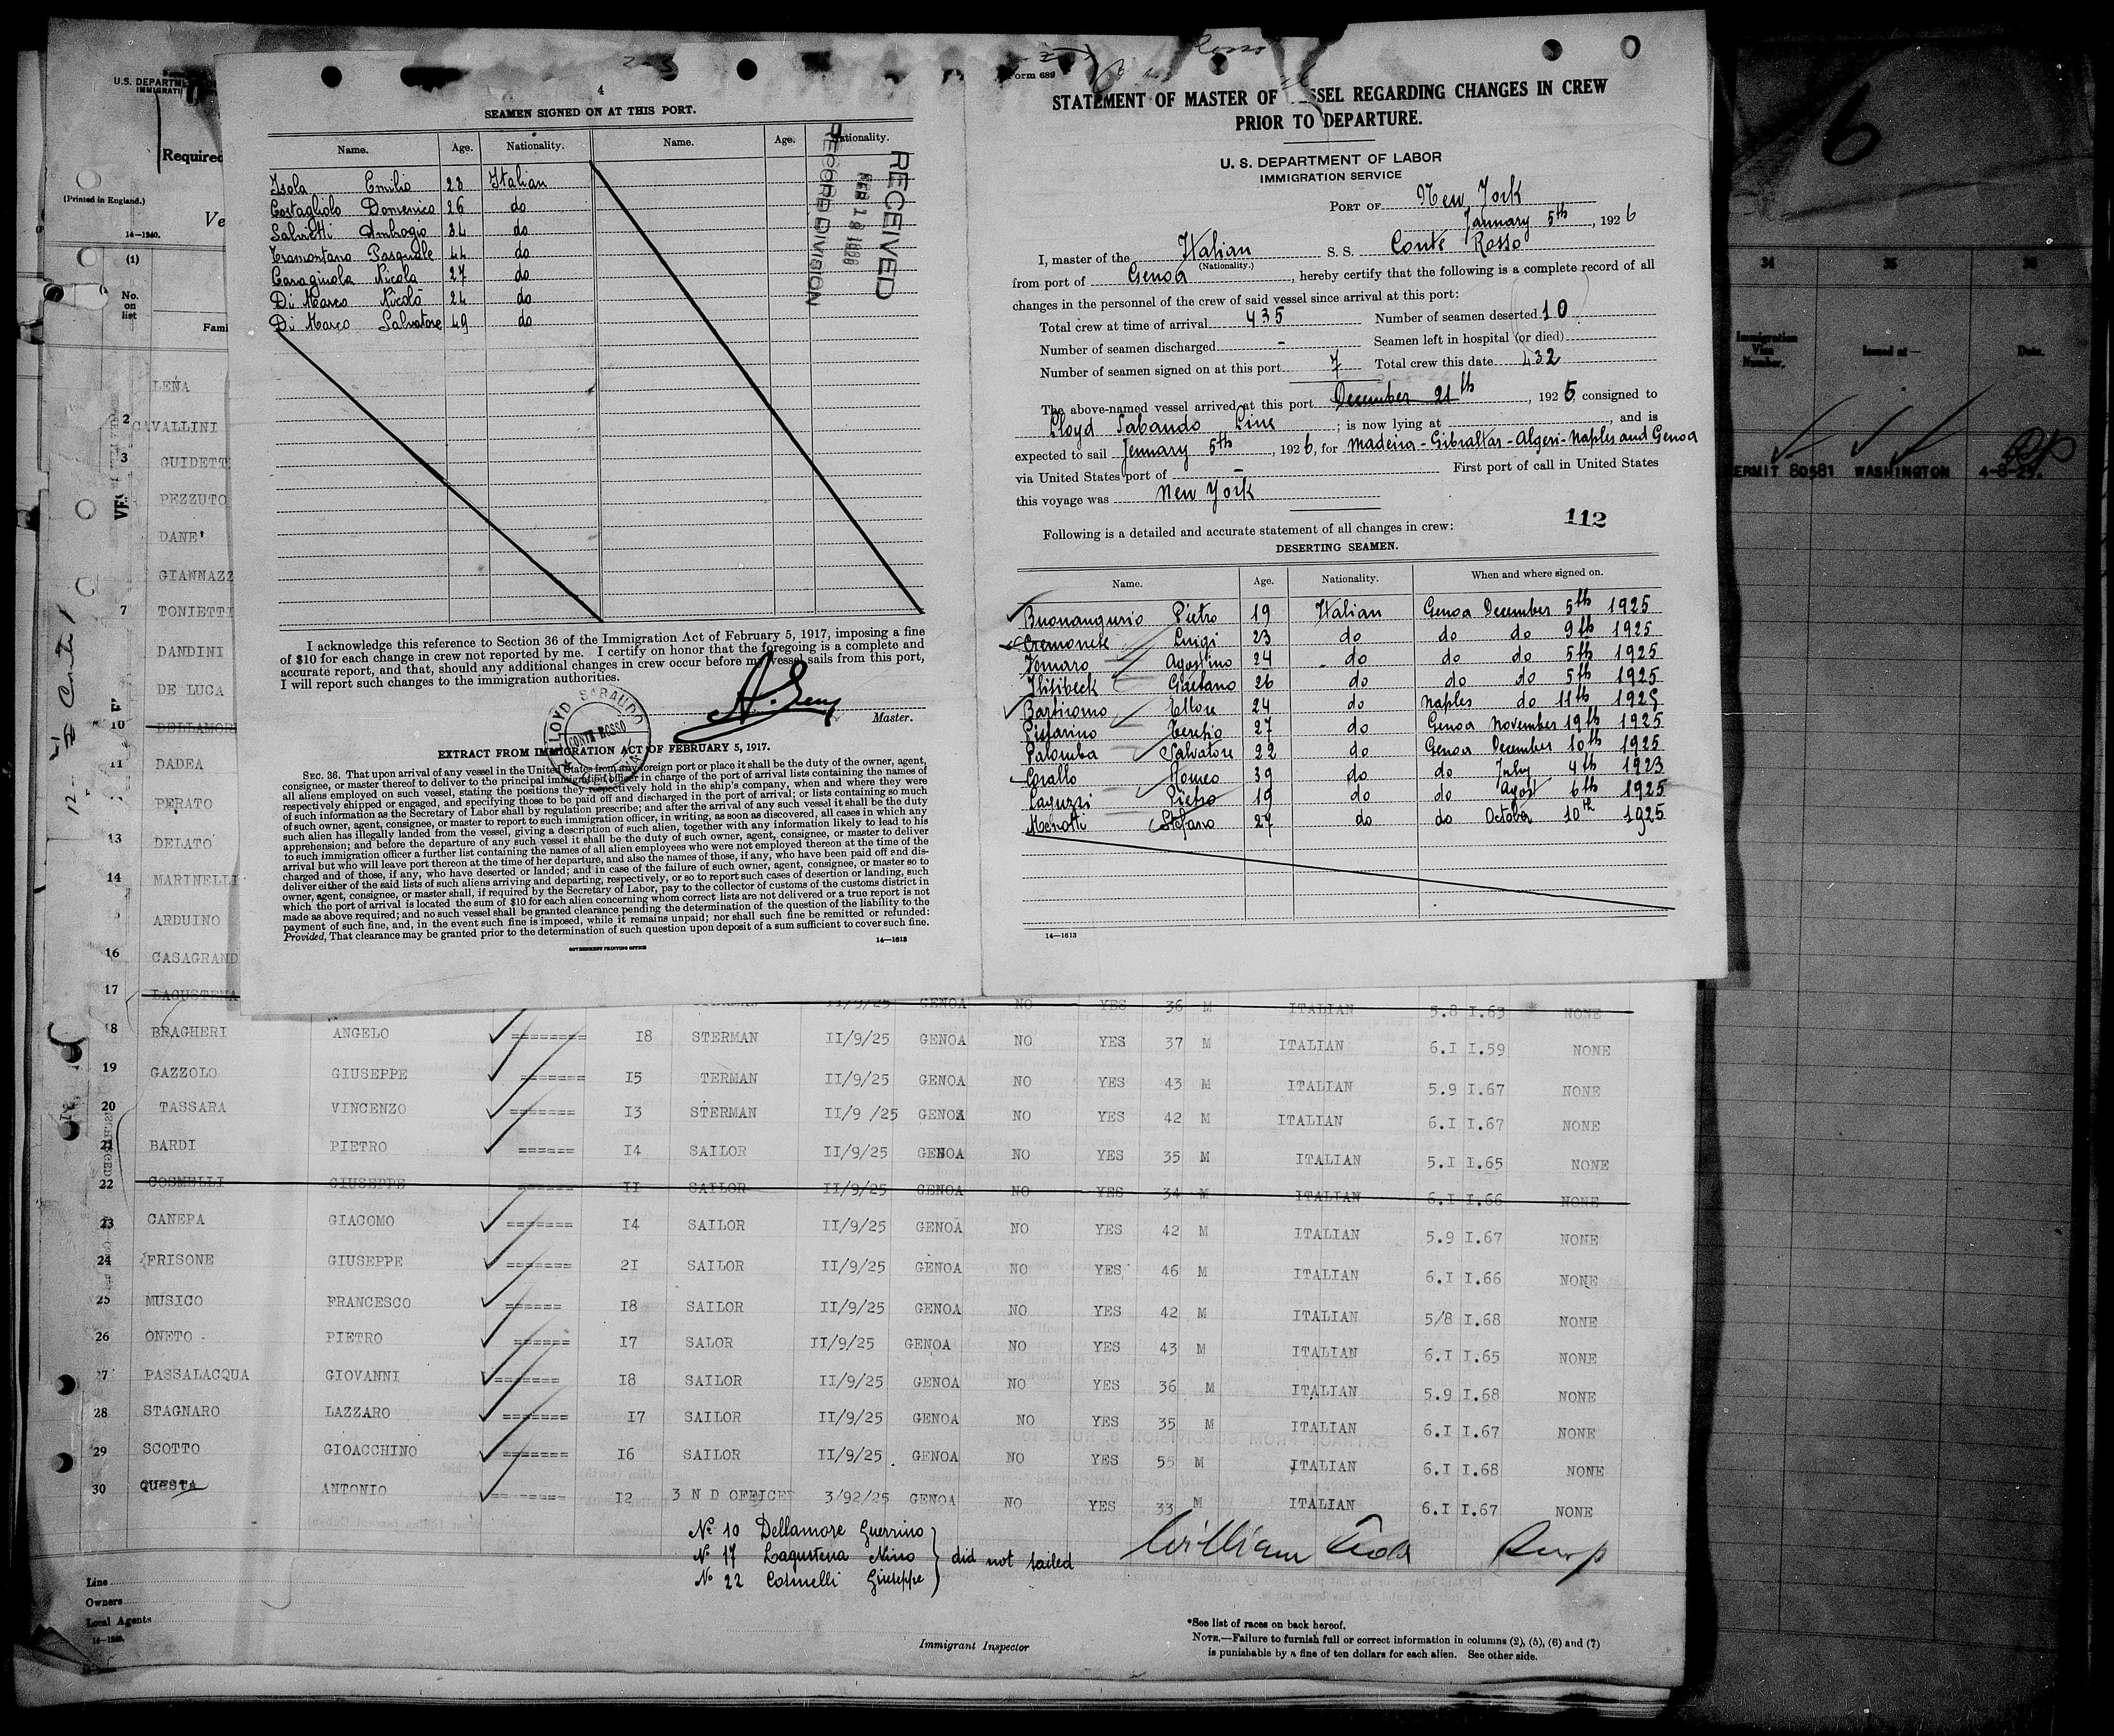 4
SEAMEN SIGNED ON AT THIS PORT.
Name. Age. Nationality. Name. Age. Nationality.
Isola Emilio 23 Italian
Costagliolo Domenico 26 do
Salvietti Ambrogio 34 do
Tramontano Pasquale 44 do
Nicola 27 do
Di Marco Nicolò 24 do
Di Marco Salvatore 49 do
RECEIVED
RECORD DIVISION
I acknowledge this reference to Section 36 of the Immigration Act of February 5, 1917, imposing a fine
of $10 for each change in crew not reported by me. I certify on honor that the foregoing is a complete and
accurate report, and that, should any additional changes in crew occur before my vessel sails from this port,
I will report such changes to the immigration authorities.
Master.
LLOYD SABAUDO
CONTE ROSSO
EXTRACT FROM IMMIGRATION ACT OF FEBRUARY 5, 1917.
SEC. 36. That upon arrival of any vessel in the United States from any foreign port or place it shall be the duty of the owner, agent,
consignee, or master thereof to deliver to the principal immigration officer in charge of the port of arrival lists containing the names of
all aliens employed on such vessel, stating the positions they respectively hold in the ship's company, when and where they were
respectively shipped or engaged, and specifying those to be paid off and discharged in the port of arrival; or lists containing so much
of such information as the Secretary of Labor shall by regulation prescribe; and after the arrival of any such vessel it shall be the duty
of such owner, agent, consignee, or master to report to such immigration officer, in writing, as soon as discovered, all cases in which any
such alien has illegally landed from the vessel, giving a description of such alien, together with any information likely to lead to his
apprehension; and before the departure of any such vessel it shall be the duty of such owner, agent, consignee, or master to deliver
to such immigration officer a further list containing the names of all alien employees who were not employed thereon at the time of the
arrival but who will leave port thereon at the time of her departure, and also the names of those, if any, who have been paid off and dis-
charged and of those, if any, who have deserted or landed; and in case of the failure of such owner, agent, consignee, or master so to
deliver either of the said lists of such aliens arriving and departing, respectively, or so to report such cases of desertion or landing, such
owner, agent, consignee, or master shall, if required by the Secretary of Labor, pay to the collector of customs of the customs district in
which the port of arrival is located the sum of $10 for each alien concerning whom correct lists are not delivered or a true report is not
made as above required; and no such vessel shall be granted clearance pending the determination of the question of the liability to the
payment of such fine, and, in the event such fine is imposed, while it remains unpaid; nor shall such fine be remitted or refunded:
Provided, That clearance may be granted prior to the determination of such question upon deposit of a sum sufficient to cover such fine.
GOVERNMENT PRINTING OFFICE 14—1613
Form 689
STATEMENT OF MASTER OF VESSEL REGARDING CHANGES IN CREW
PRIOR TO DEPARTURE.
U. S. DEPARTMENT OF LABOR
IMMIGRATION SERVICE
PORT OF New York
January 5th, 1926
I, master of the Italian S. S. Conte Rosso
(Nationality.)
from port of Genoa, hereby certify that the following is a complete record of all
changes in the personnel of the crew of said vessel since arrival at this port:
Total crew at time of arrival 435 Number of seamen deserted 10
Number of seamen discharged - Seamen left in hospital (or died)
Number of seamen signed on at this port 7 Total crew this date 432
The above-named vessel arrived at this port December 21th, 1925, consigned to
Lloyd Sabaudo Line; is now lying at , and is
expected to sail Jennary 5th, 1926, for Madeira - Gibraltar - Algeri - Naples and Genoa
via United States port of - First port of call in United States
this voyage was New York
Following is a detailed and accurate statement of all changes in crew: 112
DESERTING SEAMEN.
Name. Age. Nationality. When and where signed on.
Buonangurio Pietro 19 Italian Genoa December 5th 1925
Cremonese Luigi 23 do do do 9th 1925
Agostino 24 do do do 5th 1925
Gaetano 26 do do do 5th 1925
Bartiromo Ettore 24 do Naples do 11th 1925
27 do Genoa November 19th 1925
Palomba Salvatore 22 do Genoa December 10th 1925
Corallo Homeo 39 do do July 4th 1923
Pietro 19 do do Agost 6th 1925
Menotti Stefano 27 do do October 10th 1925
14—1613
U.S. DEPARTME
IMMIGRATI
Required
(Printed in England.)
Ve
14—1240.
(1)
No.
on
list
Fami
LENA
2 CAVALLINI
3 GUIDETT
PEZZUTO
DANE'
GIANNAZZ
7 TONIETTI
DANDINI
DE LUCA
10 DELLAMOR
11 DADEA
PERATO
13 DELATO
14 MARINELLI
ARDUINO
16 CASAGRAND
17 LAGUSTENA 11/9/25 GENOA NO YES 36 M ITALIAN 5.8 I.63 NONE
18 BRAGHERI ANGELO 18 STERMAN II/9/25 GENOA NO YES 37 M ITALIAN 6.I I.59 NONE
19 GAZZOLO GIUSEPPE I5 TERMAN II/9/25 GENOA NO YES 43 M ITALIAN 5.9 I.67 NONE
20 TASSARA VINCENZO I3 STERMAN II/9 /25 GENOA NO YES 42 M ITALIAN 6.I I.67 NONE
21 BARDI PIETRO I4 SAILOR II/9/25 GENOA NO YES 35 M ITALIAN 5.I I.65 NONE
22 COSMELLI GIUSEPPE II SAILOR II/9/25 GENOA NO YES 34 M ITALIAN 6.I I.66 NONE
23 CANEPA GIACOMO I4 SAILOR II/9/25 GENOA NO YES 42 M ITALIAN 5.9 I.67 NONE
24 FRISONE GIUSEPPE 2I SAILOR II/9/25 GENOA NO YES 46 M ITALIAN 6.I I.66 NONE
25 MUSICO FRANCESCO I8 SAILOR II/9/25 GENOA NO YES 42 M ITALIAN 5/8 I.68 NONE
26 ONETO PIETRO I7 SALOR II/9/25 GENOA NO YES 43 M ITALIAN 6.I I.65 NONE
27 PASSALACQUA GIOVANNI I8 SAILOR II/9/25 GENOA NO YES 36 M ITALIAN 5.9 I.68 NONE
28 STAGNARO LAZZARO I7 SAILOR II/9/25 GENOA NO YES 35 M ITALIAN 6.I I.67 NONE
29 SCOTTO GIOACCHINO I6 SAILOR II/9/25 GENOA NO YES 55 M ITALIAN 6.I I.68 NONE
30 QUESTA ANTONIO I2 3 N D OFFICER 3/92/25 GENOA NO YES 33 M ITALIAN 6.I I.67 NONE
No 10 Dellamore Guerrino
No 17 Lagustena Nino did not sailed
No 22 Cosmelli Giuseppe
William
Line
Owners
Local Agents
14—1240.
Immigrant Inspector
*See list of races on back hereof.
NOTE.—Failure to furnish full or correct information in columns (2), (5), (6) and (7)
is punishable by a fine of ten dollars for each alien. See other side.
6
34 35 36
Immigration
Visa
Number. Issued at— Date.
ERMIT 80581 WASHINGTON 4-8-25.